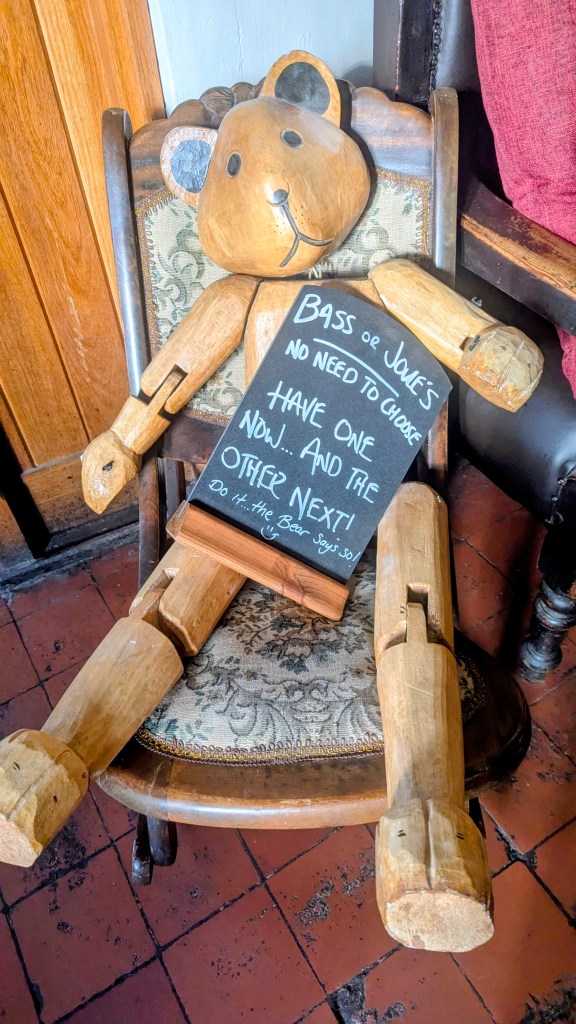 BASS OR JOULE'S
NO NEED TO CHOOSE
HAVE ONE
NOW... AND THE
OTHER NEXT!
Do it...the Bear says so!